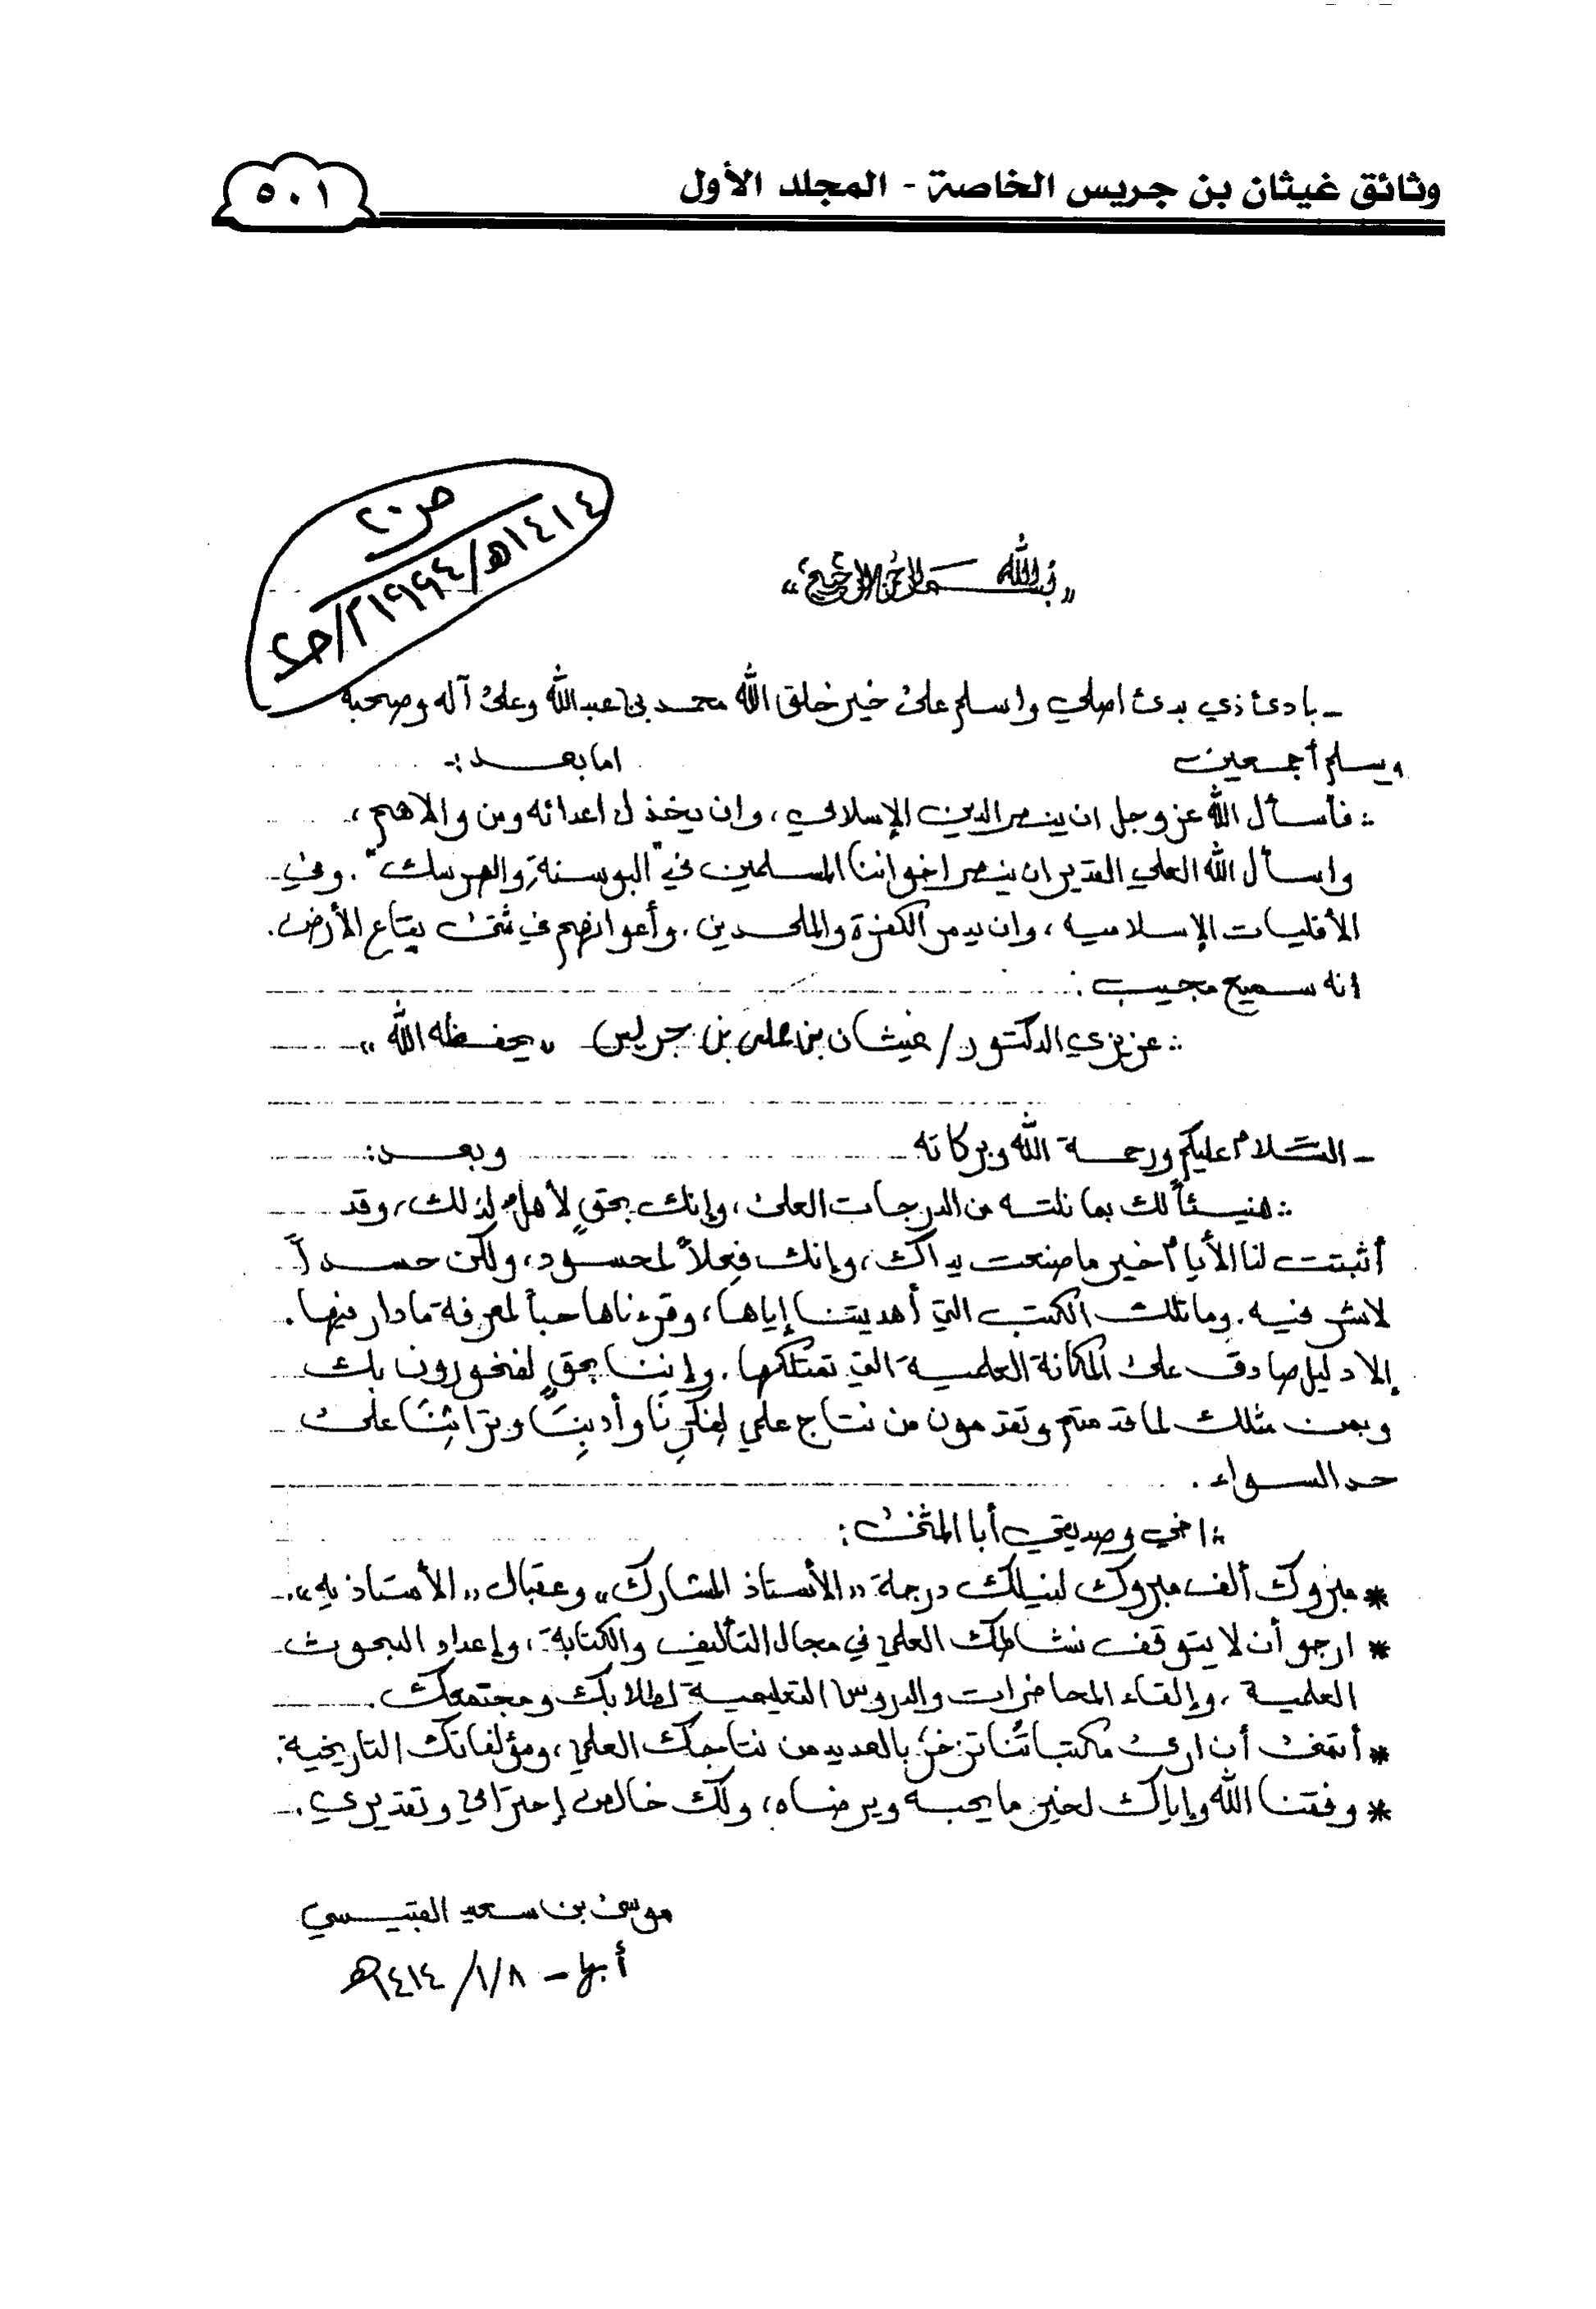 وثائق غيثان بن جريس الخاصة - المجلد الأول
٥٠١
ص٢٠
١٤١٤هـ/١٩٩٤م/ح٢
«بسم الله الرحمن الرحيم»
- بادئ ذي بدئ اصلي واسلم على خير خلق الله محمد بن عبدالله وعلى آله وصحبه
وسلم أجمعين اما بعد :-
:: فأسأل الله عز وجل ان ينصر الدين الإسلامي، وان يخذل اعدائه ومن والاهم،
واسأل الله العلي القدير ان ينصر اخواننا المسلمين في "البوسنة والهرسك". وفي
الأقليات الإسلاميه، وان يدمر الكفرة والملحدين. وأعوانهم في شتى بقاع الأرض.
انه سميع مجيب.
:: عزيزي الدكتور/ غيثان بن علي بن جريس «يحفظه الله»
- السلام عليكم ورحمة الله وبركاته وبعد:
:: هنيئاً لك بما نلته من الدرجات العلى، وإنك بحقٍ لأهلٌ لذلك، وقد
أثبتت لنا الأيام أخير ما صنعت يداك، وإنك فعلاً لمحسود، ولكن حسداً
لاشر فيه. وما تلك الكتب التي أهديتنا إياها، وقرءناها حباً لمعرفة مادار فيها.
إلا دليل صادق على المكانة العلمية التي تمتلكها. وإننا بحقٍ لفخورون بك
وبمن مثلك لما قدمتم وتقدمون من نتاج علمي لِفكرِنَا وأدبِنَا وتراثِنَا على
حد السواء.
:: اخي وصديقي أبا المثنى:
* مبروك ألف مبروك لنيلك درجة «الأستاذ المشارك» وعقبال «الأستاذيه».
* ارجو أن لا يتوقف نشاطك العلمي في مجال التأليف والكتابة، وإعداد البحوث
العلمية، وإلقاء المحاضرات والدروس التعليمية لطلابك ومجتمعك.
* أتمنى أن ارى مكتباتُنا تزخرُ بالعديد من نتاجك العلمي، ومؤلفاتك التاريخية.
* وفقنا الله وإياك لخير ما يحبه ويرضاه، ولك خالص إحترامي وتقديري.
موسى بن سعيد القبيسي
أبها - ١/٨/ ١٤١٤هـ